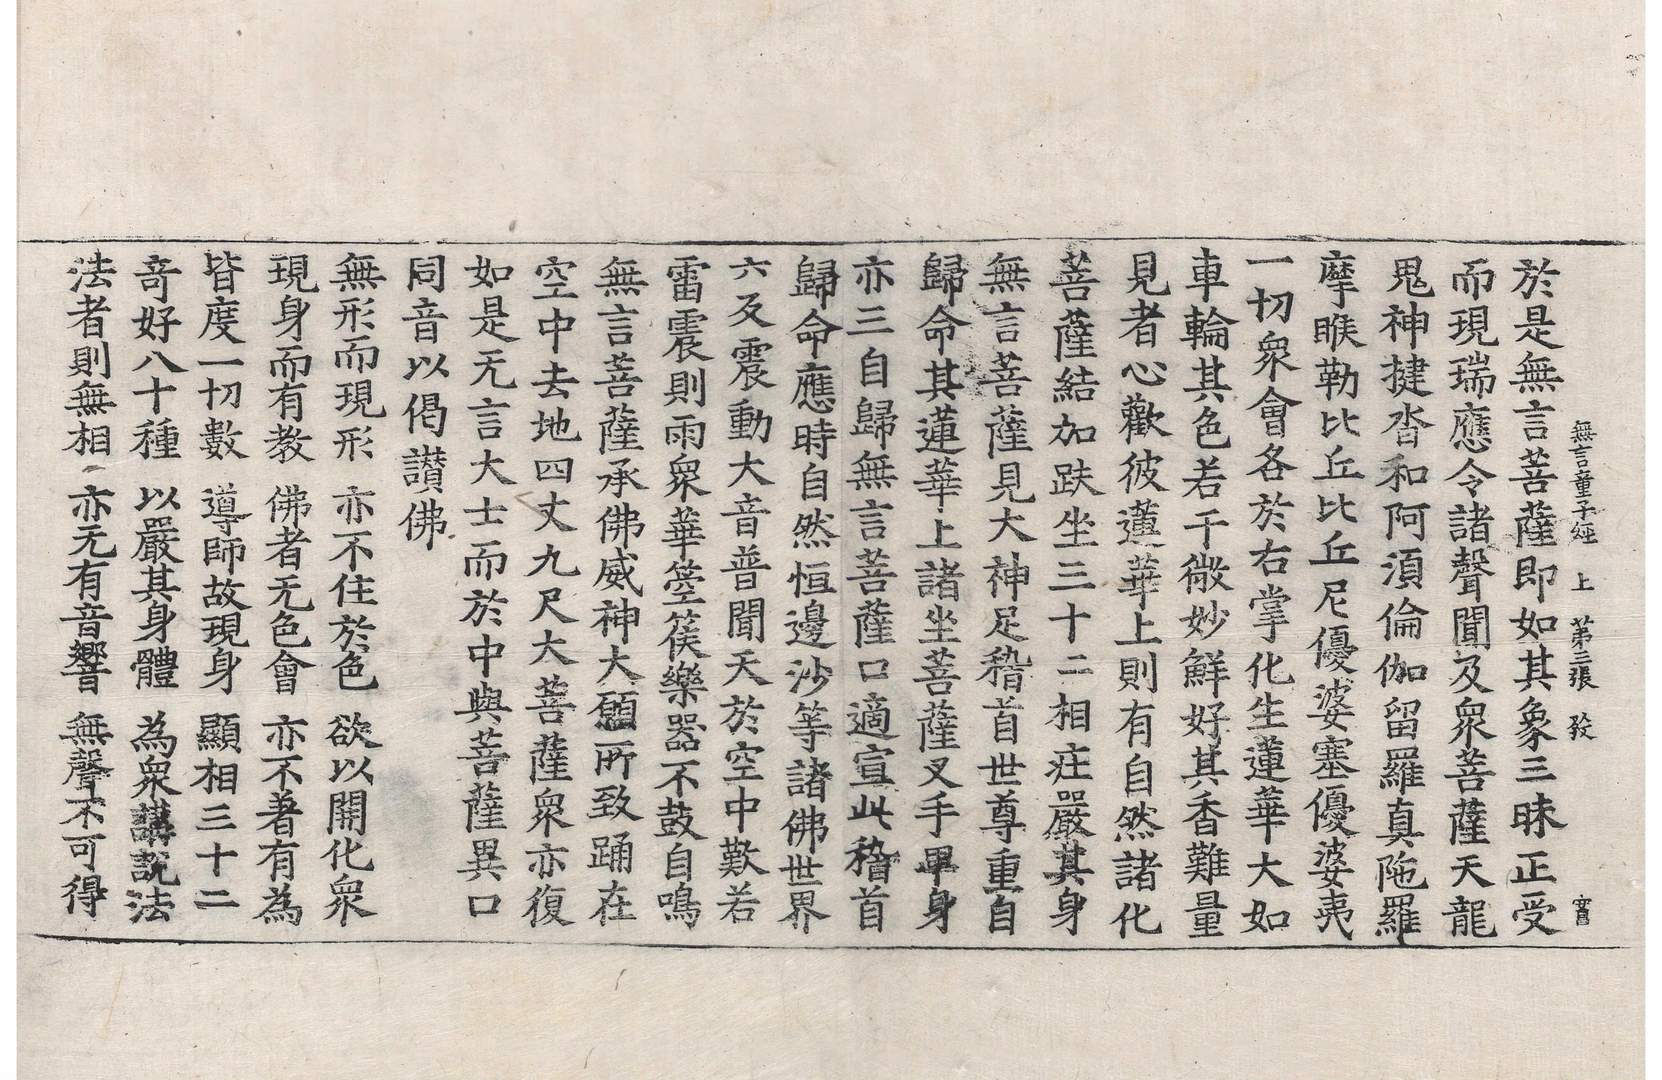 無言童子經 上 第三張 發 富
於是無言菩薩即如其象三昧正受
而現瑞應令諸聲聞及衆菩薩天龍
鬼神揵沓和阿須倫伽留羅真陁羅
摩睺勒比丘比丘尼優婆塞優婆夷
一切衆會各於右掌化生蓮華大如
車輪其色若干微妙鮮好其香難量
見者心歡彼蓮華上則有自然諸化
菩薩結加趺坐三十二相莊嚴其身
無言菩薩見大神足稽首世尊重自
歸命其蓮華上諸坐菩薩叉手畢身
亦三自歸無言菩薩口適宣此稽首
歸命應時自然恒邊沙等諸佛世界
六反震動大音普聞天於空中歎若
雷震則雨衆華箜篌樂器不鼓自鳴
無言菩薩承佛威神大願所致踊在
空中去地四丈九尺大菩薩衆亦復
如是无言大士而於中與菩薩異口
同音以偈讃佛
無形而現形 亦不住於色 欲以開化衆
現身而有教 佛者无色會 亦不著有為
皆度一切數 導師故現身 顯相三十二
奇好八十種 以嚴其身體 為衆講說法
法者則無相 亦无有音響 無聲不可得